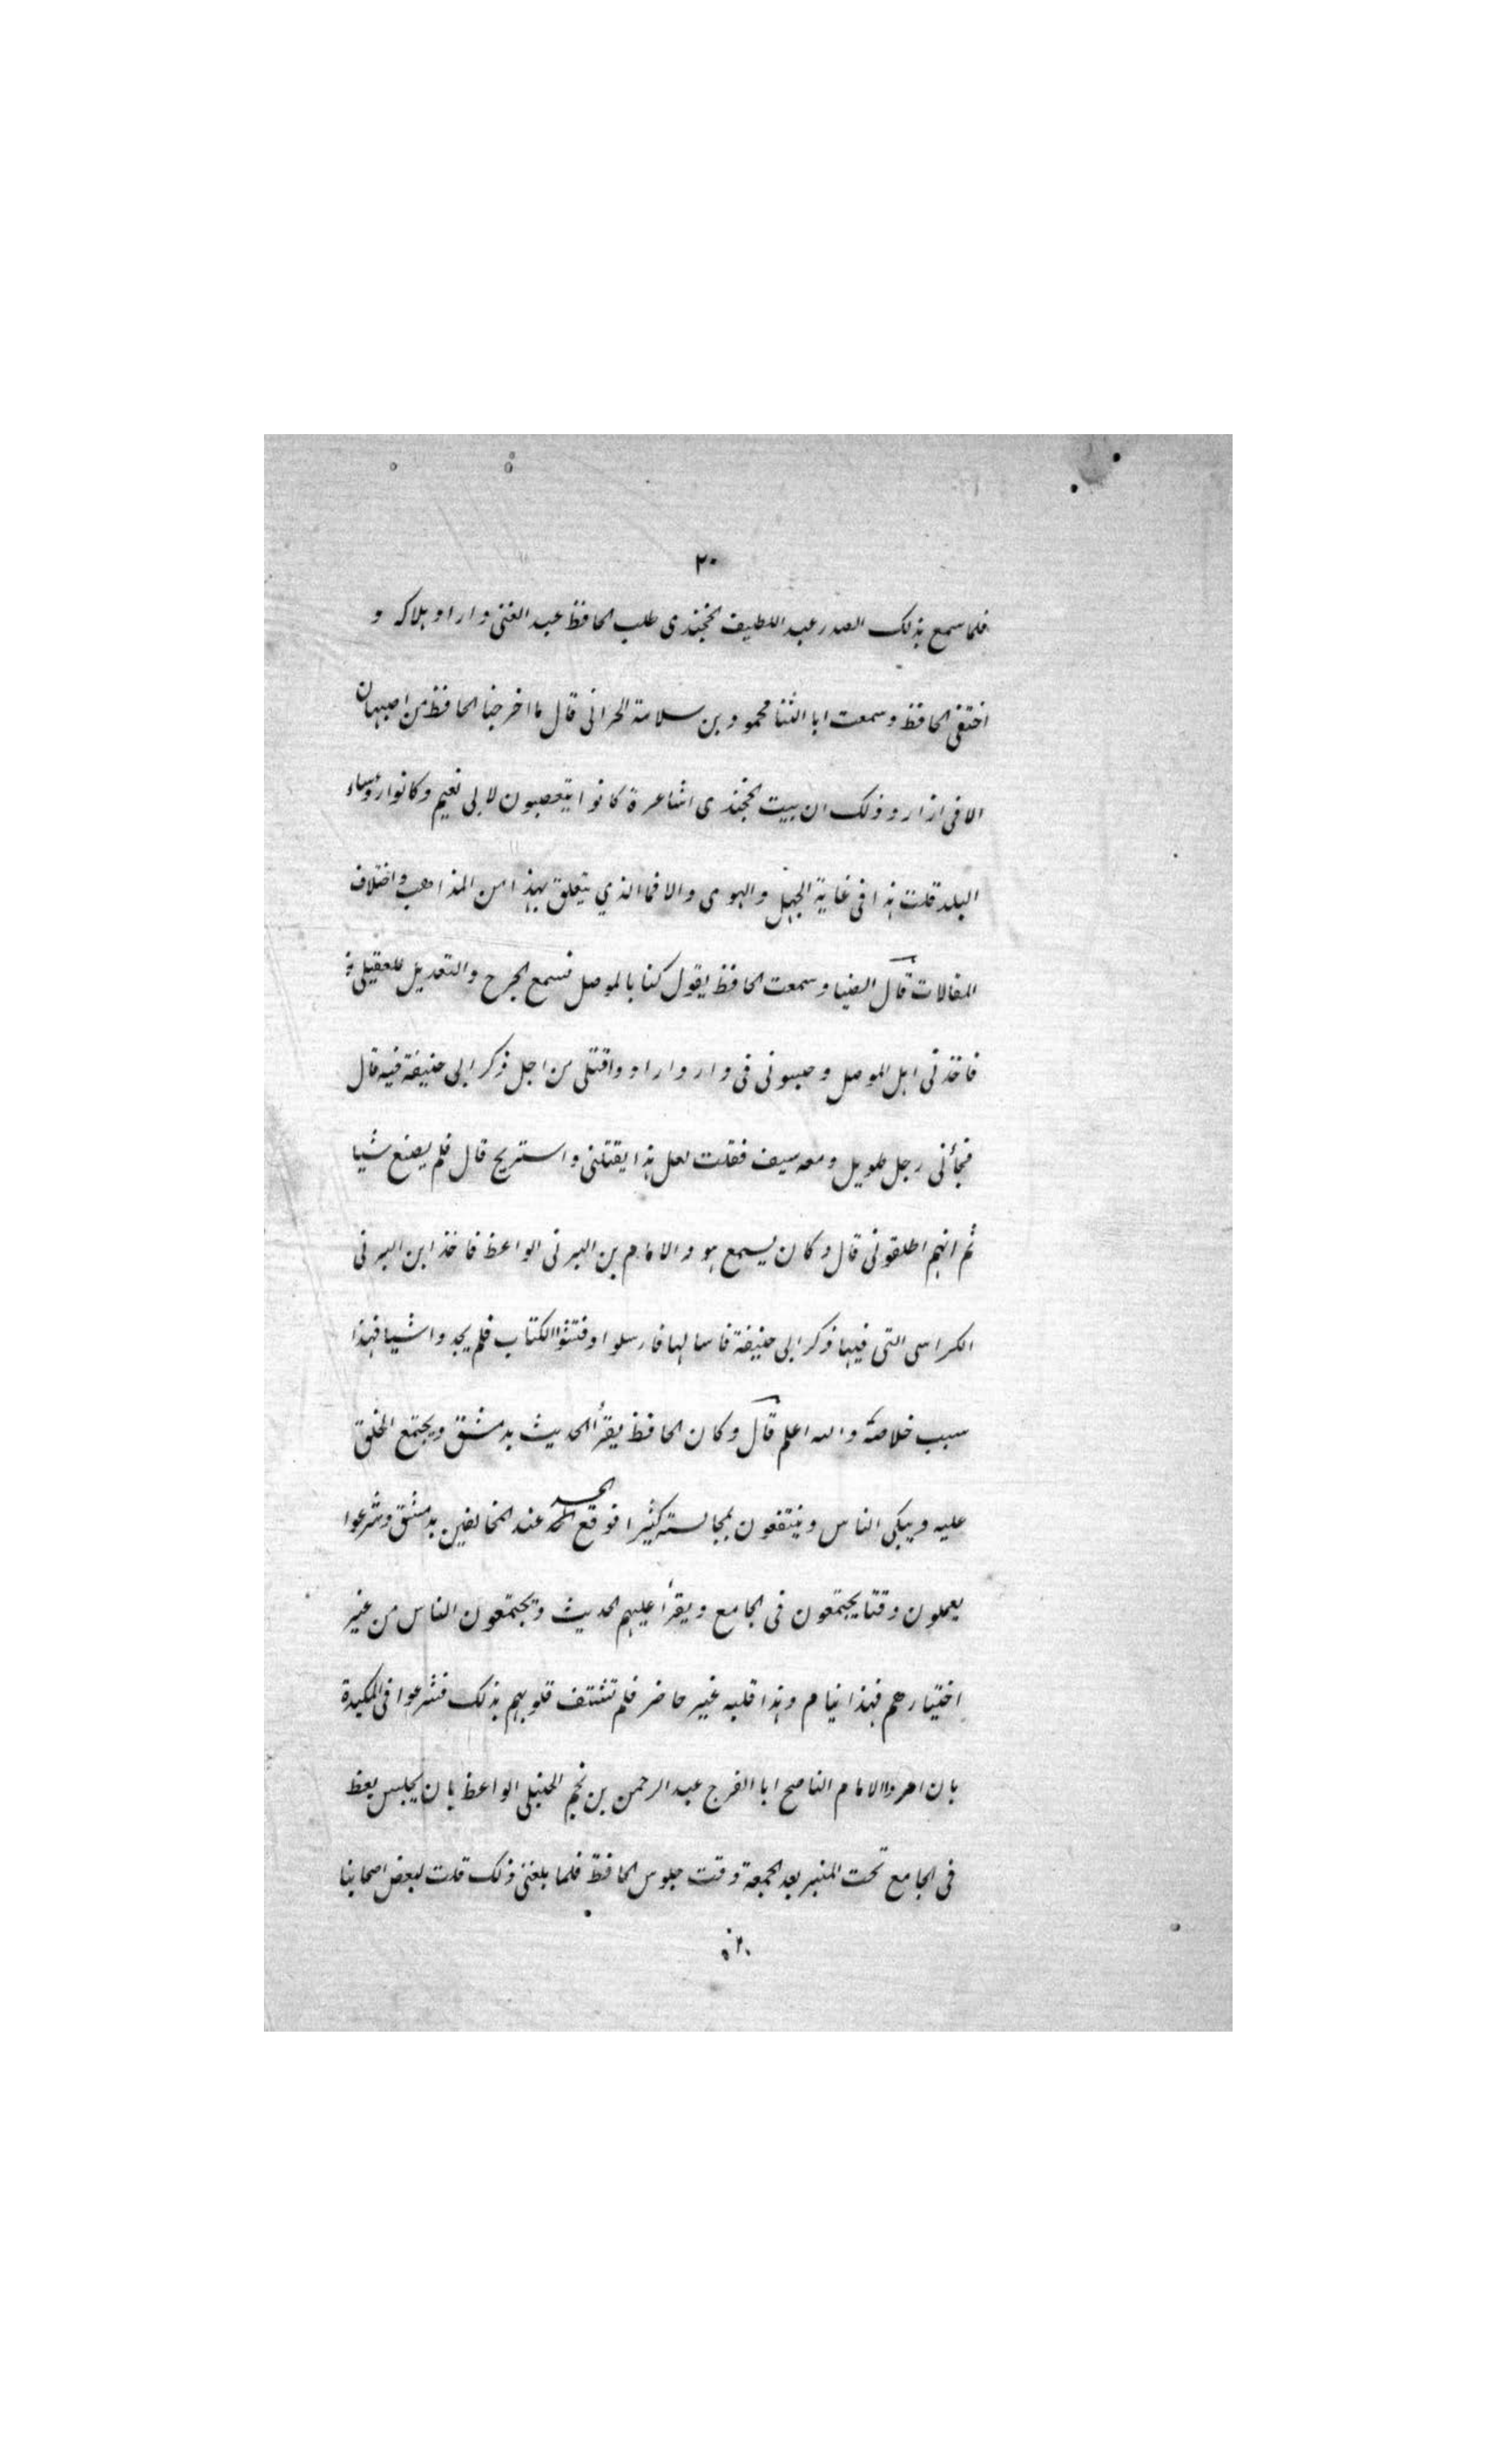 ٢٠
فلما سمع بذلك الصدر عبد اللطيف الخجندى طلب الحافظ عبد الغنى واراد هلاكه و
اختفى الحافظ وسمعت ابا الثنا محمود بن سلامة الحرانى قال ما اخرجنا الحافظ من اصبهان
الا فى ازار وذلك ان بيت الخجندى اشاعرة كانوا يتعصبون لابى نعيم وكانوا رؤساء
البلد قلت هذا فى غاية الجهل والهوى والا فما الذي يتعلق بهذا من المذاهب واختلاف
المقالات قال الضيا وسمعت الحافظ يقول كنا بالموصل نسمع الجرح والتعديل للعقيلى
فاخذنى اهل الموصل وحبسونى فى دار وارادوا قتلى من اجل ذكر ابى حنيفة فيه قال
فجأنى رجل طويل ومعه سيف فقلت لعل هذا يقتلنى واستريح قال فلم يصنع شيا
ثم انهم اطلقونى قال وكان يسمع هو والامام بن البرنى الواعظ فاخذ ابن البرنى
الكراسى التى فيها ذكر ابى حنيفة فاسالها فارسلوا وفتشوا الكتاب فلم يجدوا شيا فهذا
سبب خلاصه والله اعلم قال وكان الحافظ يقرأ الحديث بدمشق ويجتمع الخلق
عليه ويبكى الناس وينتفعون بمجالسته كثيرا فوقع الحسد عند المخالفين بدمشق وشرعوا
يعملون وقتا يجتمعون فى الجامع ويقرأ عليهم الحديث ويجتمعون الناس من غير
اختيارهم فهذا نيام وهذا قلبه غير حاضر فلم تشتف قلوبهم بذلك فشرعوا فى المكيدة
بان امروا الامام الناصح ابا الفرج عبد الرحمن بن نجم الحنبلى الواعظ بان يجلس يعظ
فى الجامع تحت المنبر بعد الجمعة وقت جلوس الحافظ فلما بلغنى ذلك قلت لبعض اصحابنا